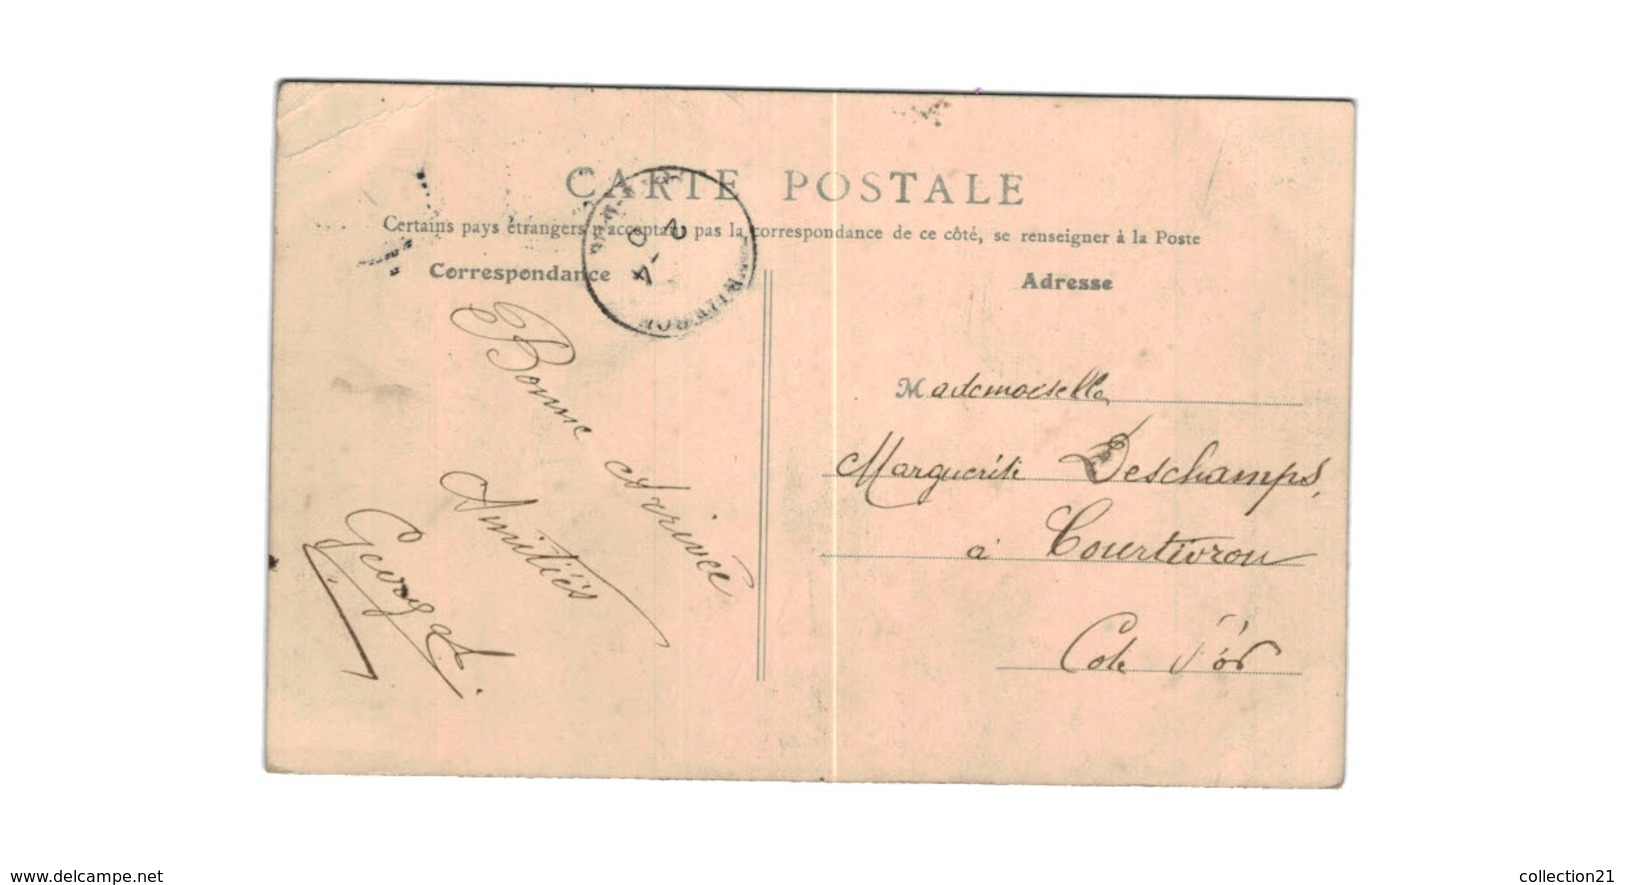 CARTE POSTALE
Certains pays étrangers n'acceptant pas la correspondance de ce côté, se renseigner à la Poste
Correspondance
Adresse
Bonne Arrivée
Amitiés
Mademoiselle
Marguerite Deschamps,
à Courtivron
Cote d'or
www.delcampe.net
collection21